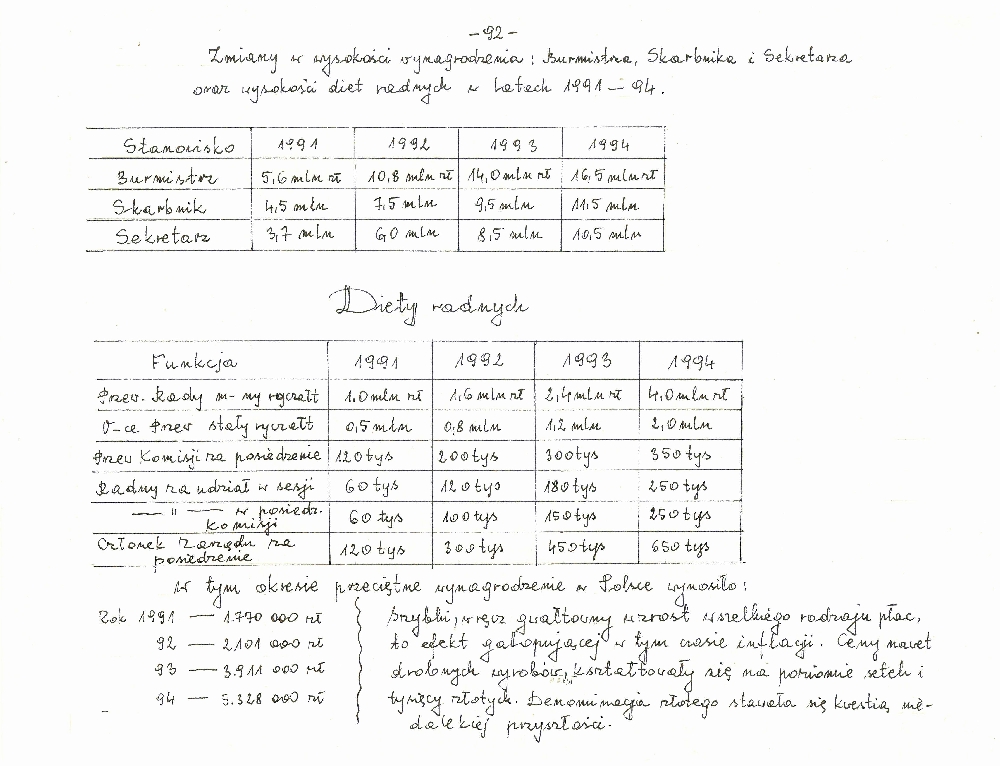 -92-
Zmiany w wysokości wynagrodzenia: Burmistrza, Skarbnika i Sekretarza
oraz wysokości diet radnych w latach 1991 - 94.
Stanowisko 1991 1992 1993 1994
Burmistrz 5,6 mln zł 10,8 mln zł 14,0 mln zł 16,5 mln zł
Skarbnik 4,5 mln 7,5 mln 9,5 mln 11,5 mln
Sekretarz 3,7 mln 6,0 mln 8,5 mln 10,5 mln
Diety radnych
Funkcja 1991 1992 1993 1994
Przew. Rady m-ny ryczałt 1.0 mln zł 1,6 mln zł 2,4 mln zł 4,0 mln zł
V-ce Przew stały ryczałt 0,5 mln 0,8 mln 1,2 mln 2,0 mln
Przew Komisji za posiedzenie 120 tys 200 tys 300 tys 350 tys
Radny za udział w sesji 60 tys 120 tys 180 tys 250 tys
— " — w posiedz. komisji 60 tys 100 tys 150 tys 250 tys
Członek Zarządu za posiedzenie 120 tys 300 tys 450 tys 650 tys
W tym okresie przeciętne wynagrodzenie w Polsce wynosiło:
Rok 1991 — 1.770 000 zł
92 — 2.101 000 zł
93 — 3.911 000 zł
94 — 5.328 000 zł
Szybki, wręcz gwałtowny wzrost wszelkiego rodzaju płac,
to efekt galopującej w tym czasie inflacji. Ceny nawet
drobnych wyrobów, kształtowały się na poziomie setek i
tysięcy złotych. Denominacja złotego stawała się kwestią nie-
dalekiej przyszłości.